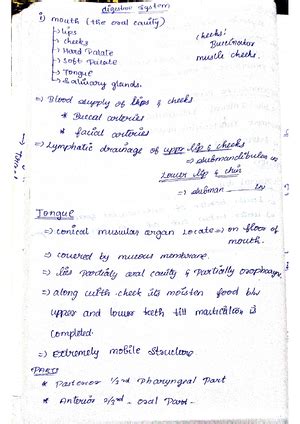 digestive system
i) mouth (the oral cavity)
→ lips
→ cheeks
→ Hard Palate
→ Soft Palate
→ Tongue
→ Salivary glands.
cheeks:
Buccinator
muscle cheeks.
⇒ Blood supply of lips & cheeks
* Buccal arteries
* facial arteries
⇒ Lymphatic drainage of upper lip & cheeks
⇒ submandibular
Lower lip & chin
⇒ submen
Tongue
⇒ conical muscular organ Locate → on floor of
mouth.
⇒ covered by mucous membrane.
⇒ lies Partially oral cavity & Partially oropharynx
⇒ along with cheek its moisten food b/w
upper and lower teeth till mastication is
completed.
⇒ Extremely mobile structure
PARTS
* Posterior 1/3rd Pharyngeal Part
* Anterior 2/3rd - oral Part.